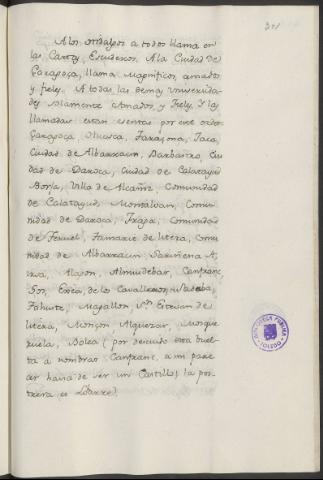 301
A los Hidalgos a todos llama en
las Cartas, Escuderos. A la Ciudad de
Zaragoça, llama Magnificos, amados
y fieles. A todas las demas Universida-
des solamente Amados, y Fieles. Y las
llamadas estan escritas por este orden
Zaragoza, Huesca, Tarazona, Jaca,
Ciudad de Albarracin, Barbastro, Ciu-
dad de Daroca, Ciudad de Calatayud
Borja, Villa de Alcañiz, Comunidad
de Calatayud, Montalvan, Comu-
nidad de Daroca, Fraga, Comunidad
de Teruel, Tamarite de litera, Comu-
nidad de Albarracin Sariñena A,
insa, Alagon, Almudebar, Canfranc
Sos, Exea de los Cavalleros, Sadaba,
Tahuste, Magallon, Sn. Estevan de
litera, Monçon Alquezar, Mosque-
ruela, Bolea (por descuido otra buel-
ta a nombrar Canfranc, a mi pare-
cer havia de ser un Castillo) la pos-
trera es Loarre.
BIBLIOTECA PUBLICA
TOLEDO